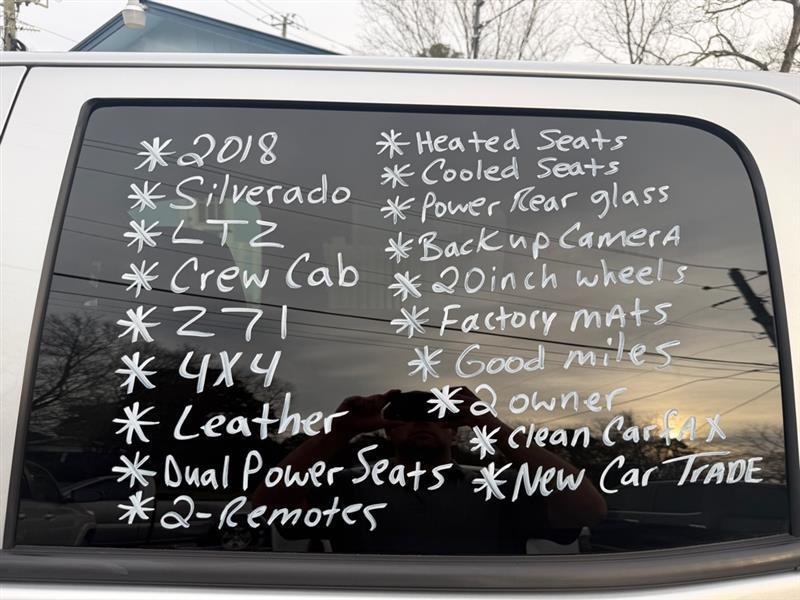 * 2018
* Silverado
* LTZ
* Crew Cab
* Z71
* 4X4
* Leather
* Dual Power Seats
* 2-Remotes
* Heated Seats
* Cooled Seats
* Power Rear glass
* Backup CamerA
* 20inch wheels
* Factory mAts
* Good miles
* 2 owner
* Clean CarfAX
* New Car TRADE